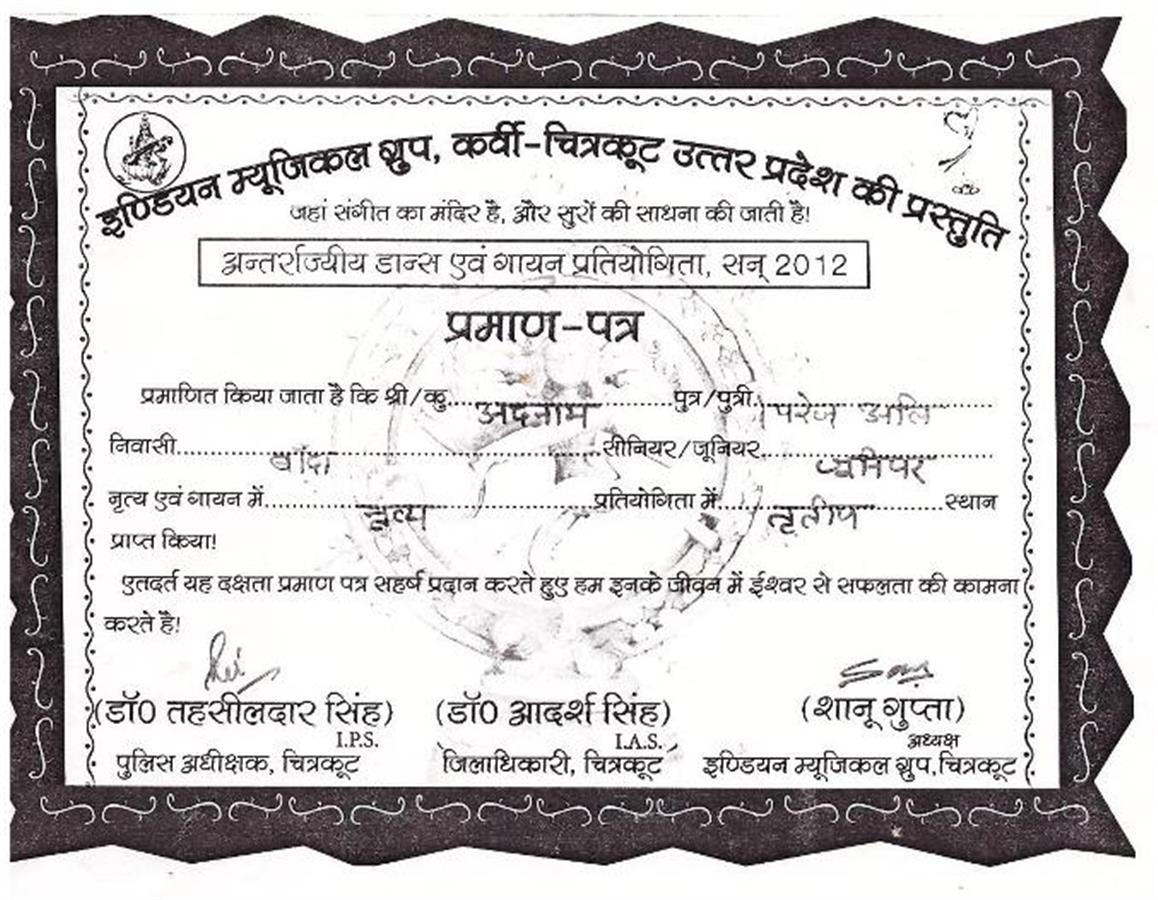 इण्डियन म्यूजिकल ग्रुप, कर्वी-चित्रकूट उत्तर प्रदेश की प्रस्तुति
जहां संगीत का मंदिर है, और सुरों की साधना की जाती है!
अन्तर्राज्यीय डान्स एवं गायन प्रतियोगिता, सन् 2012
प्रमाण-पत्र
प्रमाणित किया जाता है कि श्री/कु. अदनाम पुत्र/पुत्री. परेज अलि
निवासी बाँदा सीनियर/जूनियर.
नृत्य एवं गायन में नृत्य प्रतियोगिता में तृतीय स्थान
प्राप्त किया!
एतदर्त यह दक्षता प्रमाण पत्र सहर्ष प्रदान करते हुए हम इनके जीवन में ईश्वर से सफलता की कामना
करते है!
(डॉ0 तहसीलदार सिंह) (डॉ0 आदर्श सिंह) (शानू गुप्ता)
I.P.S. I.A.S. अध्यक्ष
पुलिस अधीक्षक, चित्रकूट जिलाधिकारी, चित्रकूट इण्डियन म्यूजिकल ग्रुप,चित्रकूट